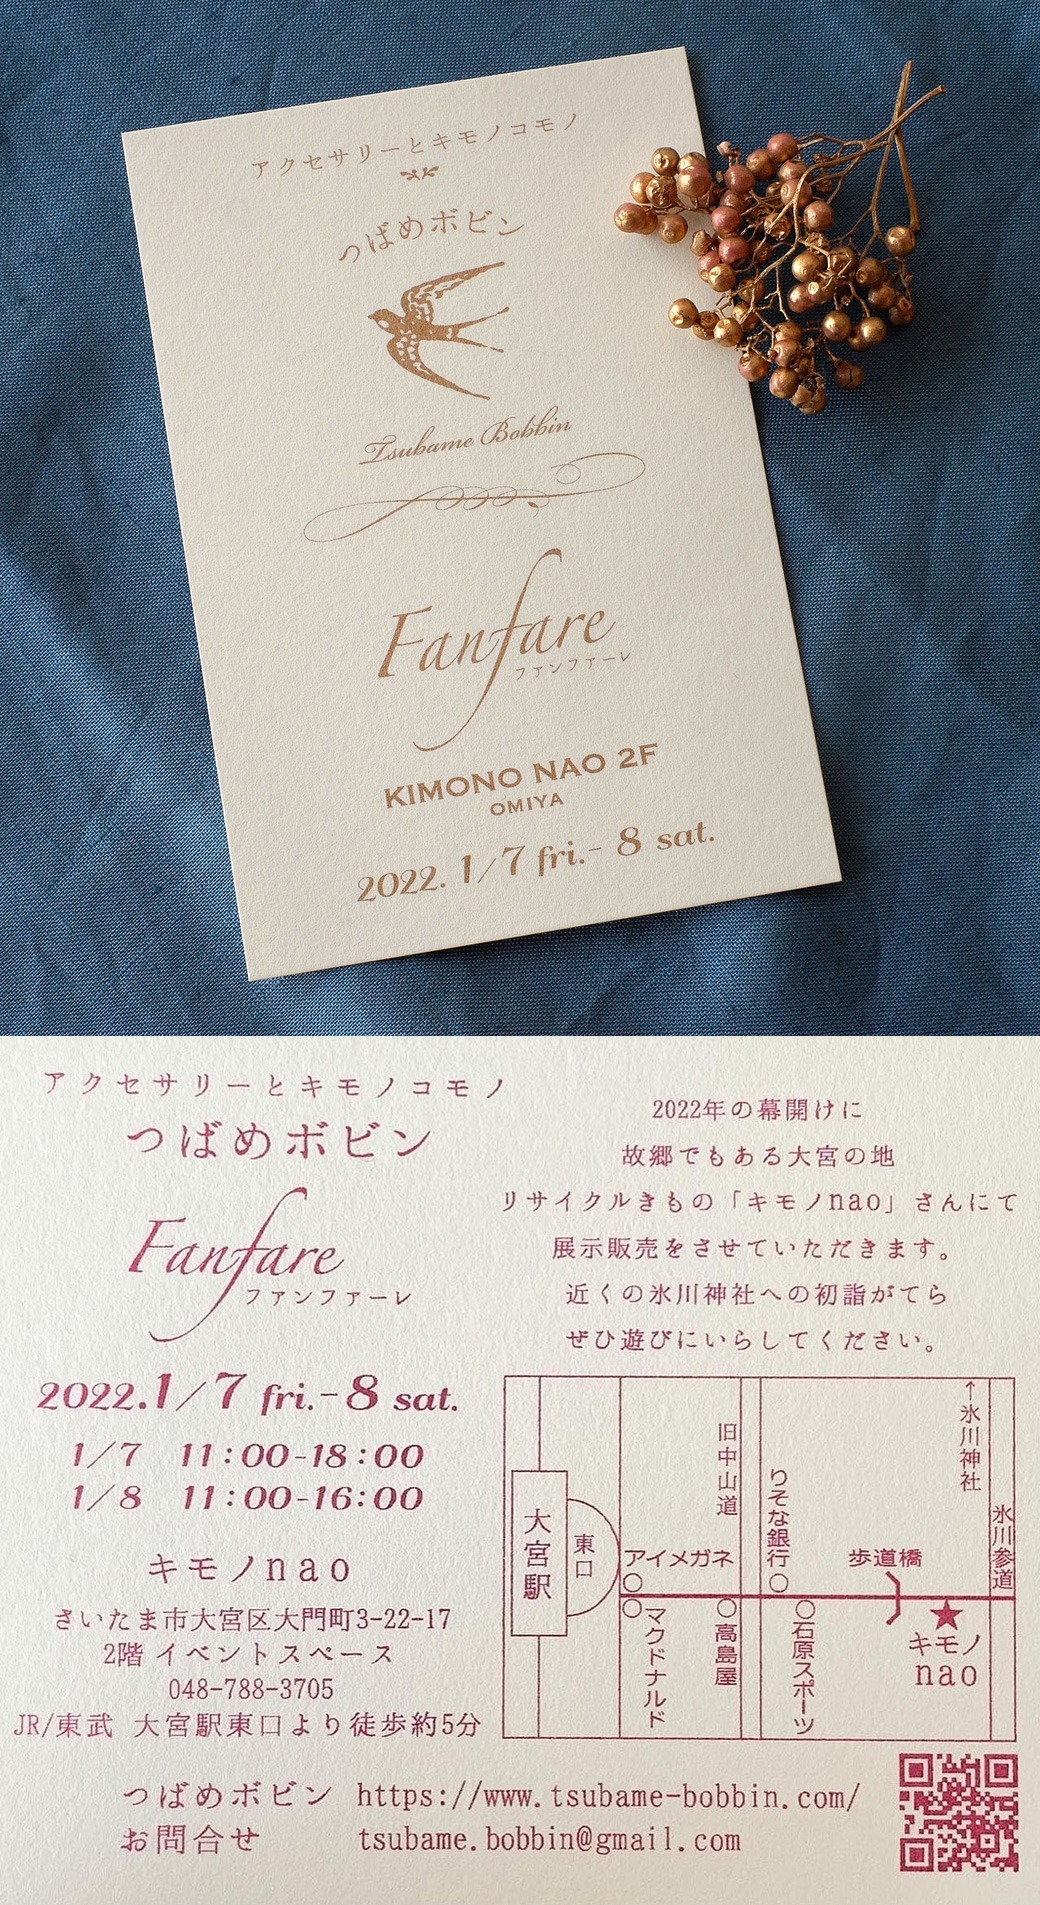 アクセサリーとキモノコモノ
つばめボビン
Tsubame Bobbin
Fanfare
ファンファーレ
KIMONO NAO 2F
OMIYA
2022. 1/7 fri.- 8 sat.
アクセサリーとキモノコモノ
つばめボビン
Fanfare
ファンファーレ
2022.1/7 fri.-8 sat.
1/7 11:00-18:00
1/8 11:00-16:00
キモノnao
さいたま市大宮区大門町3-22-17
2階 イベントスペース
048-788-3705
JR/東武 大宮駅東口より徒歩約5分
2022年の幕開けに
故郷でもある大宮の地
リサイクルきもの「キモノnao」さんにて
展示販売をさせていただきます。
近くの氷川神社への初詣がてら
ぜひ遊びにいらしてください。
大宮駅
東口
アイメガネ
マクドナルド
旧中山道
高島屋
りそな銀行
石原スポーツ
歩道橋
↑氷川神社
氷川参道
キモノ
nao
つばめボビン https://www.tsubame-bobbin.com/
お問合せ tsubame.bobbin@gmail.com